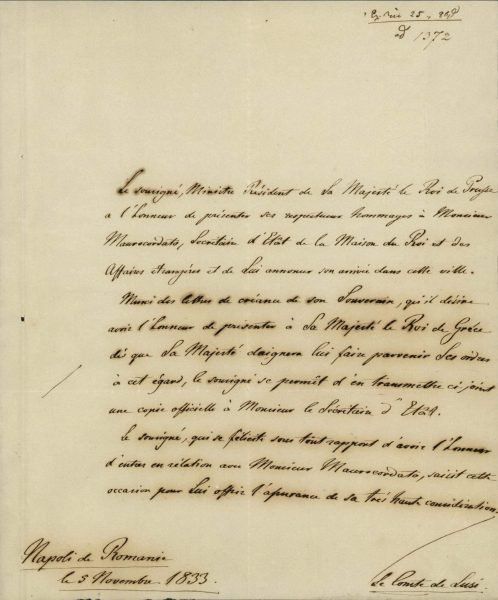 25
1372
Le sousigné, Ministre Résident de Sa Majesté le Roi de Prusse
a l'Honneur de présenter ses respectueux hommages à Monsieur
Maurocordato, Secrétaire d'Etât de la Maison du Roi et des
Affaires étrangères et de Lui annoncer son arrivée dans cette ville.
Muni des lettres de créance de son Souverain, qu'il désire
avoir l'Honneur de présenter à Sa Majesté le Roi de Grèce
dès que Sa Majesté daignera lui faire parvenir Ses ordres
à cet égard, le sousigné se permêt d'en transmettre ci-joint
une copie officielle à Monsieur le Sécrétaire d'Etât.
Le sousigné, qui se félicite sous tout rapport d'avoir l'Honneur
d'entrer en rélation avec Monsieur Maurocordato, saisit cette
occasion pour Lui offrir l'assurance de sa très haute considération.
Napoli de Romanie
le 5 Novembre 1833.
Le Comte de Lusi.